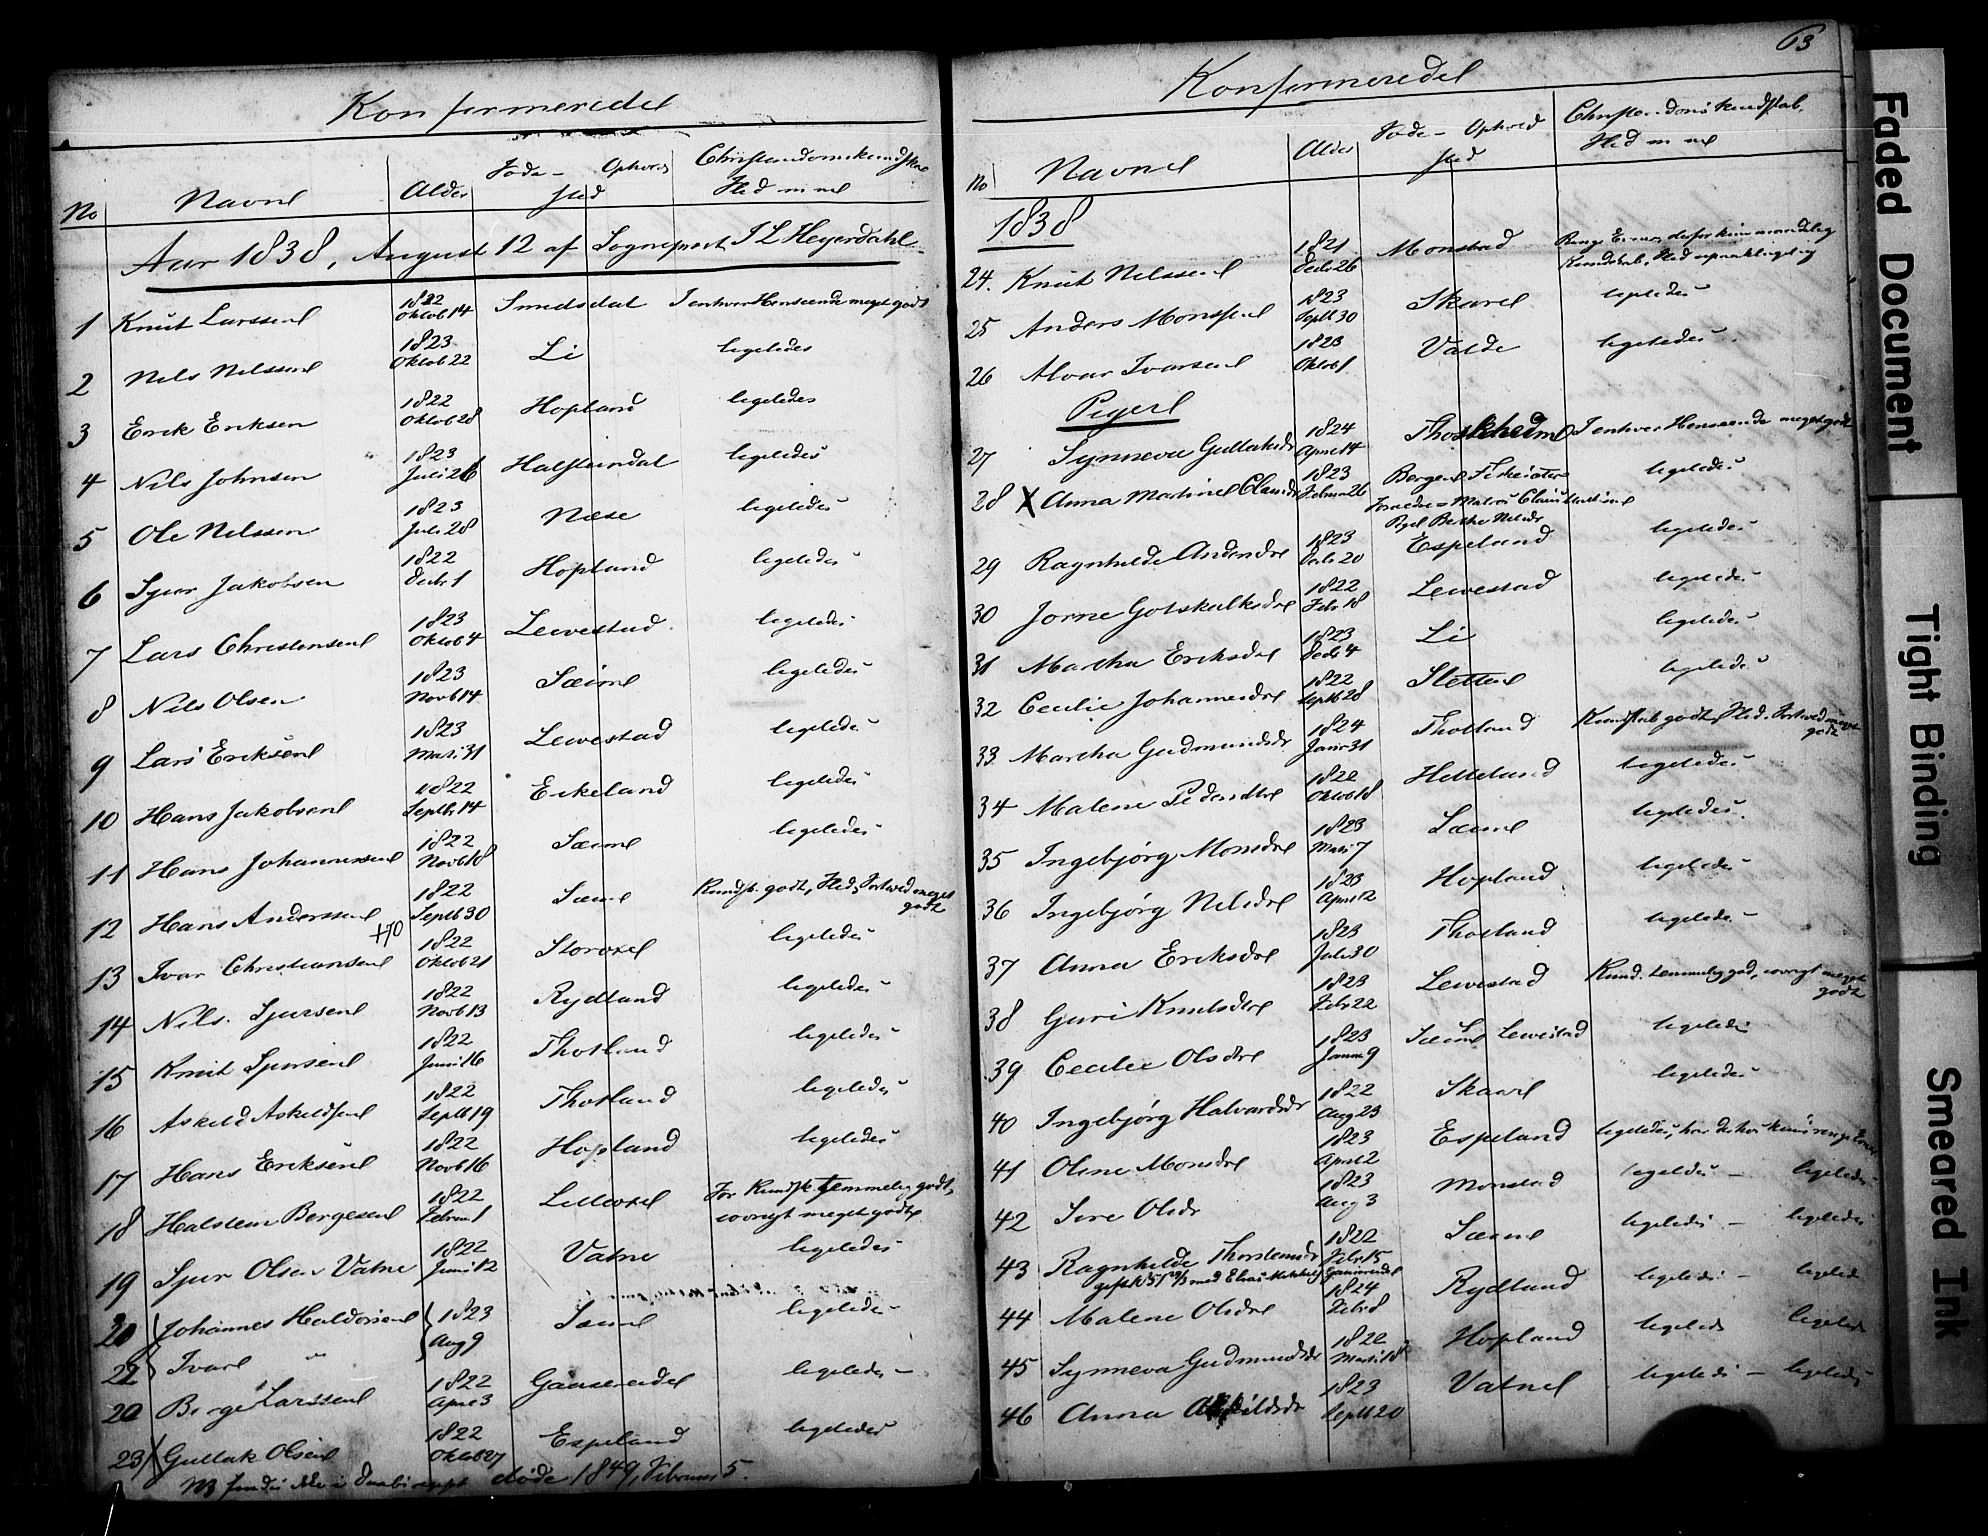 Konfirmerede
No Navne Alder Føde- Ophold sted Christendomskundskab Hed m m
Aar 1838, August 12 af Sognepræst J L Heyerdahl
1 Knut Larssen 1822 Oktob 14 Smedsdal I enhver Henseende meget godt
2 Nels Nelssen 1823 Oktob 22 Li ligeledes
3 Erik Eriksen 1822 Oktob 28 Hopland ligeledes
4 Nils Johnsen 1823 Juli 26 Halsteindal ligeledes
5 Ole Nelssen 1823 Juli 28 Næse ligeledes
6 Sjur Jakobsen 1822 Decbr 1 Hopland ligeledes
7 Lars Christensen 1823 Oktob 4 Levestad ligeledes
8 Nils Olsen 1823 Novb 14 Sæime ligeledes
9 Lars Eriksen 1823 Mats 31 Levestad ligeledes
10 Hans Jakobsen 1822 Septb 14 Eikeland ligeledes
11 Hans Johannessen 1822 Novb 18 Sæime ligeledes
12 Hans Anderssen 1822 Septb 30 Sæime Kundsk. godt, Hed, Forhved meget godt
13 Ivar Christiansen 1822 Oktob 21 Storoxel ligeledes
14 Nils Sjursen 1822 Novb 13 Rydland ligeledes
15 Knut Sjursen 1822 Juni 16 Thotland ligeledes
16 Askeld Askeldsen 1822 Septb 19 Thotland ligeledes
17 Hans Eriksen 1822 Novb 16 Hopland ligeledes
18 Halsten Bergesen 1822 Februar 1 Lilleoxel For Kundsk. temmelig godt, iøvrigt meget godt
19 Sjur Olsen Vatne 1822 Juni 12 Vatne ligeledes
20 Johannes Haldorsen 1823 Aug 9 Sæime ligeledes
Ivar "
Berge Larssen 1822 April 3 Gausereidet ligeledes
23 Gullak Olsen 1822 Oktob 27 Espeland ligeledes
døde 1849, Februar 5.
63
Konfirmerede
No Navne Alder Føde- Ophold sted Christendomskundskab. Hed m m
1838
24. Knut Nelssen 1821 Decbr 26 Monstad Ringe Evner, derfor kun maadelig Kundskab, Hed upaaklagelig
25 Anders Monssen 1823 Septb 30 Skare ligeledes
26 Alvar Ivarsen 1823 Oktob 1 Valde ligeledes
Piger
27 Synneva Gullaksdr 1824 April 14 I enhver Henseende meget godt
28 X Anna Martine Clausdr 1823 Februar 26 Bergen Fiskesøter ligeledes
Forældre = Matros Claus Martines
Pige Berthe Nelsdr
29 Ragnhilde Andersdr 1823 Decbr 20 Espeland ligeledes
30 Jorne Gotskalksdr 1822 Febr 18 Levestad ligeledes
31 Martha Eriksdr 1823 Decbr 4 Li ligeledes
32 Cecilie Johannesdr 1822 Septb 28 Slette ligeledes
33 Martha Gudmundsdr 1824 Januar 31 Thotland Kundskab godt, Hed. Forhved meget godt
34 Malene Pedersdtr 1822 Oktob 18 Helleland ligeledes
35 Ingebjørg Monsdr 1823 Mats 7 Sæime ligeledes
36 Ingebjørg Nelsdr 1823 April 12 Hopland ligeledes
37 Anna Eriksdr 1823 Juli 30 Thotland ligeledes
38 Guri Knutsdtr 1823 Febr 22 Levestad Kund. temmelig god, iøvrigt meget godt
39 Cecilie Olsdtr 1823 Januar 9 Sæime Levestad ligeledes
40 Ingebjørg Halvardsdr 1822 Aug 23 Skare ligeledes
41 Oline Monsdr 1823 April 2 Espeland ligeledes, har derhos kuns ringe Evner
42 Sire Olsdr 1823 Aug 3 Monstad ligeledes - ligeledes
43 Ragnhilde Thorstensdr 1822 Febr 15 Sæime ligeledes - ligeledes
44 Malene Olsdr 1824 Febr 8 Rydland ligeledes - ligeledes
45 Synneva Gudmundsdr 1822 Mats 18 Hopland ligeledes ligeledes
46 Anna Askildsdr 1823 Septb 20 Vatne ligeledes - ligeledes
Faded Document
Tight Binding
Smeared Ink